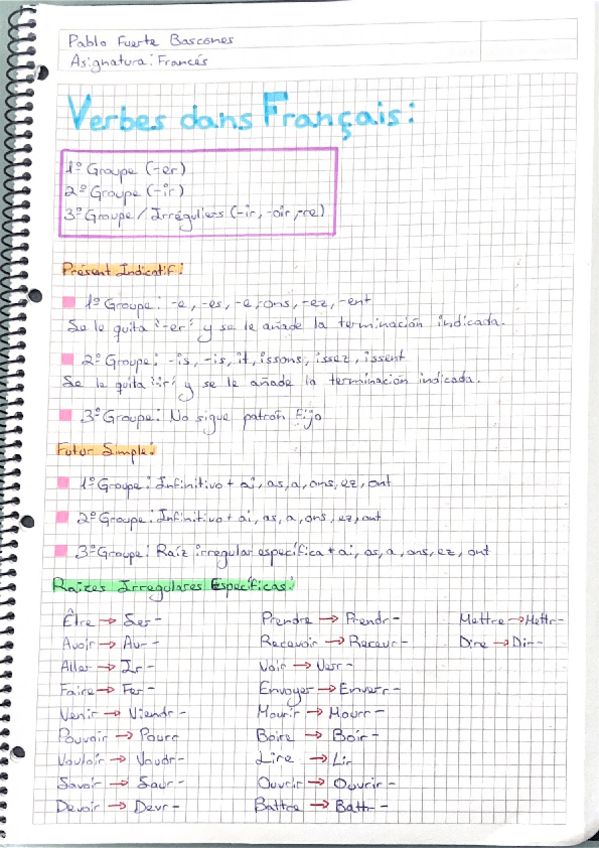 Pablo Fuerte Bascones
Asignatura: Francés
Verbes dans Français:
1º Groupe (-er)
2º Groupe (-ir)
3º Groupe / Irréguliers (-ir, -oir, -re)
Présent Indicatif:
1º Groupe: -e, -es, -e, -ons, -ez, -ent
Se le quita '-er' y se le añade la terminación indicada.
2º Groupe: -is, -is, it, issons, issez, issent
Se le quita '-ir' y se le añade la terminación indicada.
3º Groupe: No sigue patrón fijo
Futur Simple:
1º Groupe: Infinitivo + ai, as, a, ons, ez, ont
2º Groupe: Infinitivo + ai, as, a, ons, ez, ont
3º Groupe: Raíz irregular específica + ai, as, a, ons, ez, ont
Raízes Irregulares Específicas:
Être → Ser- Prendre → Prendr- Mettre → Mettr-
Avoir → Aur- Recevoir → Recevr- Dire → Dir-
Aller → Ir- Voir → Verr-
Faire → Fer- Envoyer → Enverr-
Venir → Viendr- Mourir → Mourr-
Pouvoir → Pourr Boire → Boir-
Vouloir → Voudr- Lire → Lir
Savoir → Saur- Ouvrir → Ouvrir-
Devoir → Devr- Battre → Battr-